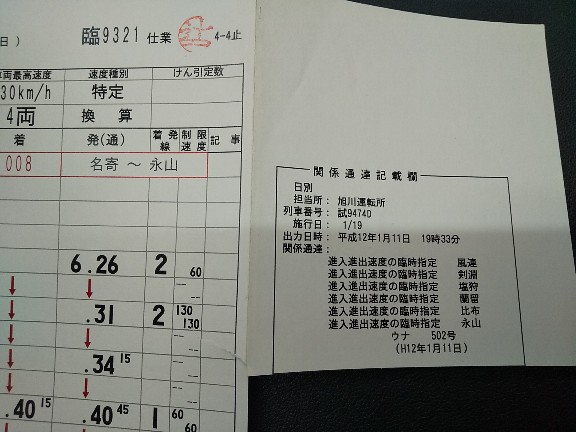 日 )
臨9321 仕業
4-4止
車両最高速度 速度種別 けん引定数
30km/h 特定
4両 換 算
着 発(通) 着発線 制限速度 記 事
008 名寄 ~ 永山
6.26 2 60
.31 2 130 130
.34 15
.40 15 .40 45 1 60 60
関係通達記載欄
日別
担当所: 旭川運転所
列車番号: 試9474D
施行日: 1/19
出力日時: 平成12年1月11日 19時33分
関係通達:
進入進出速度の臨時指定 風連
進入進出速度の臨時指定 剣淵
進入進出速度の臨時指定 塩狩
進入進出速度の臨時指定 蘭留
進入進出速度の臨時指定 比布
進入進出速度の臨時指定 永山
ウナ 502号
(H12年1月11日)